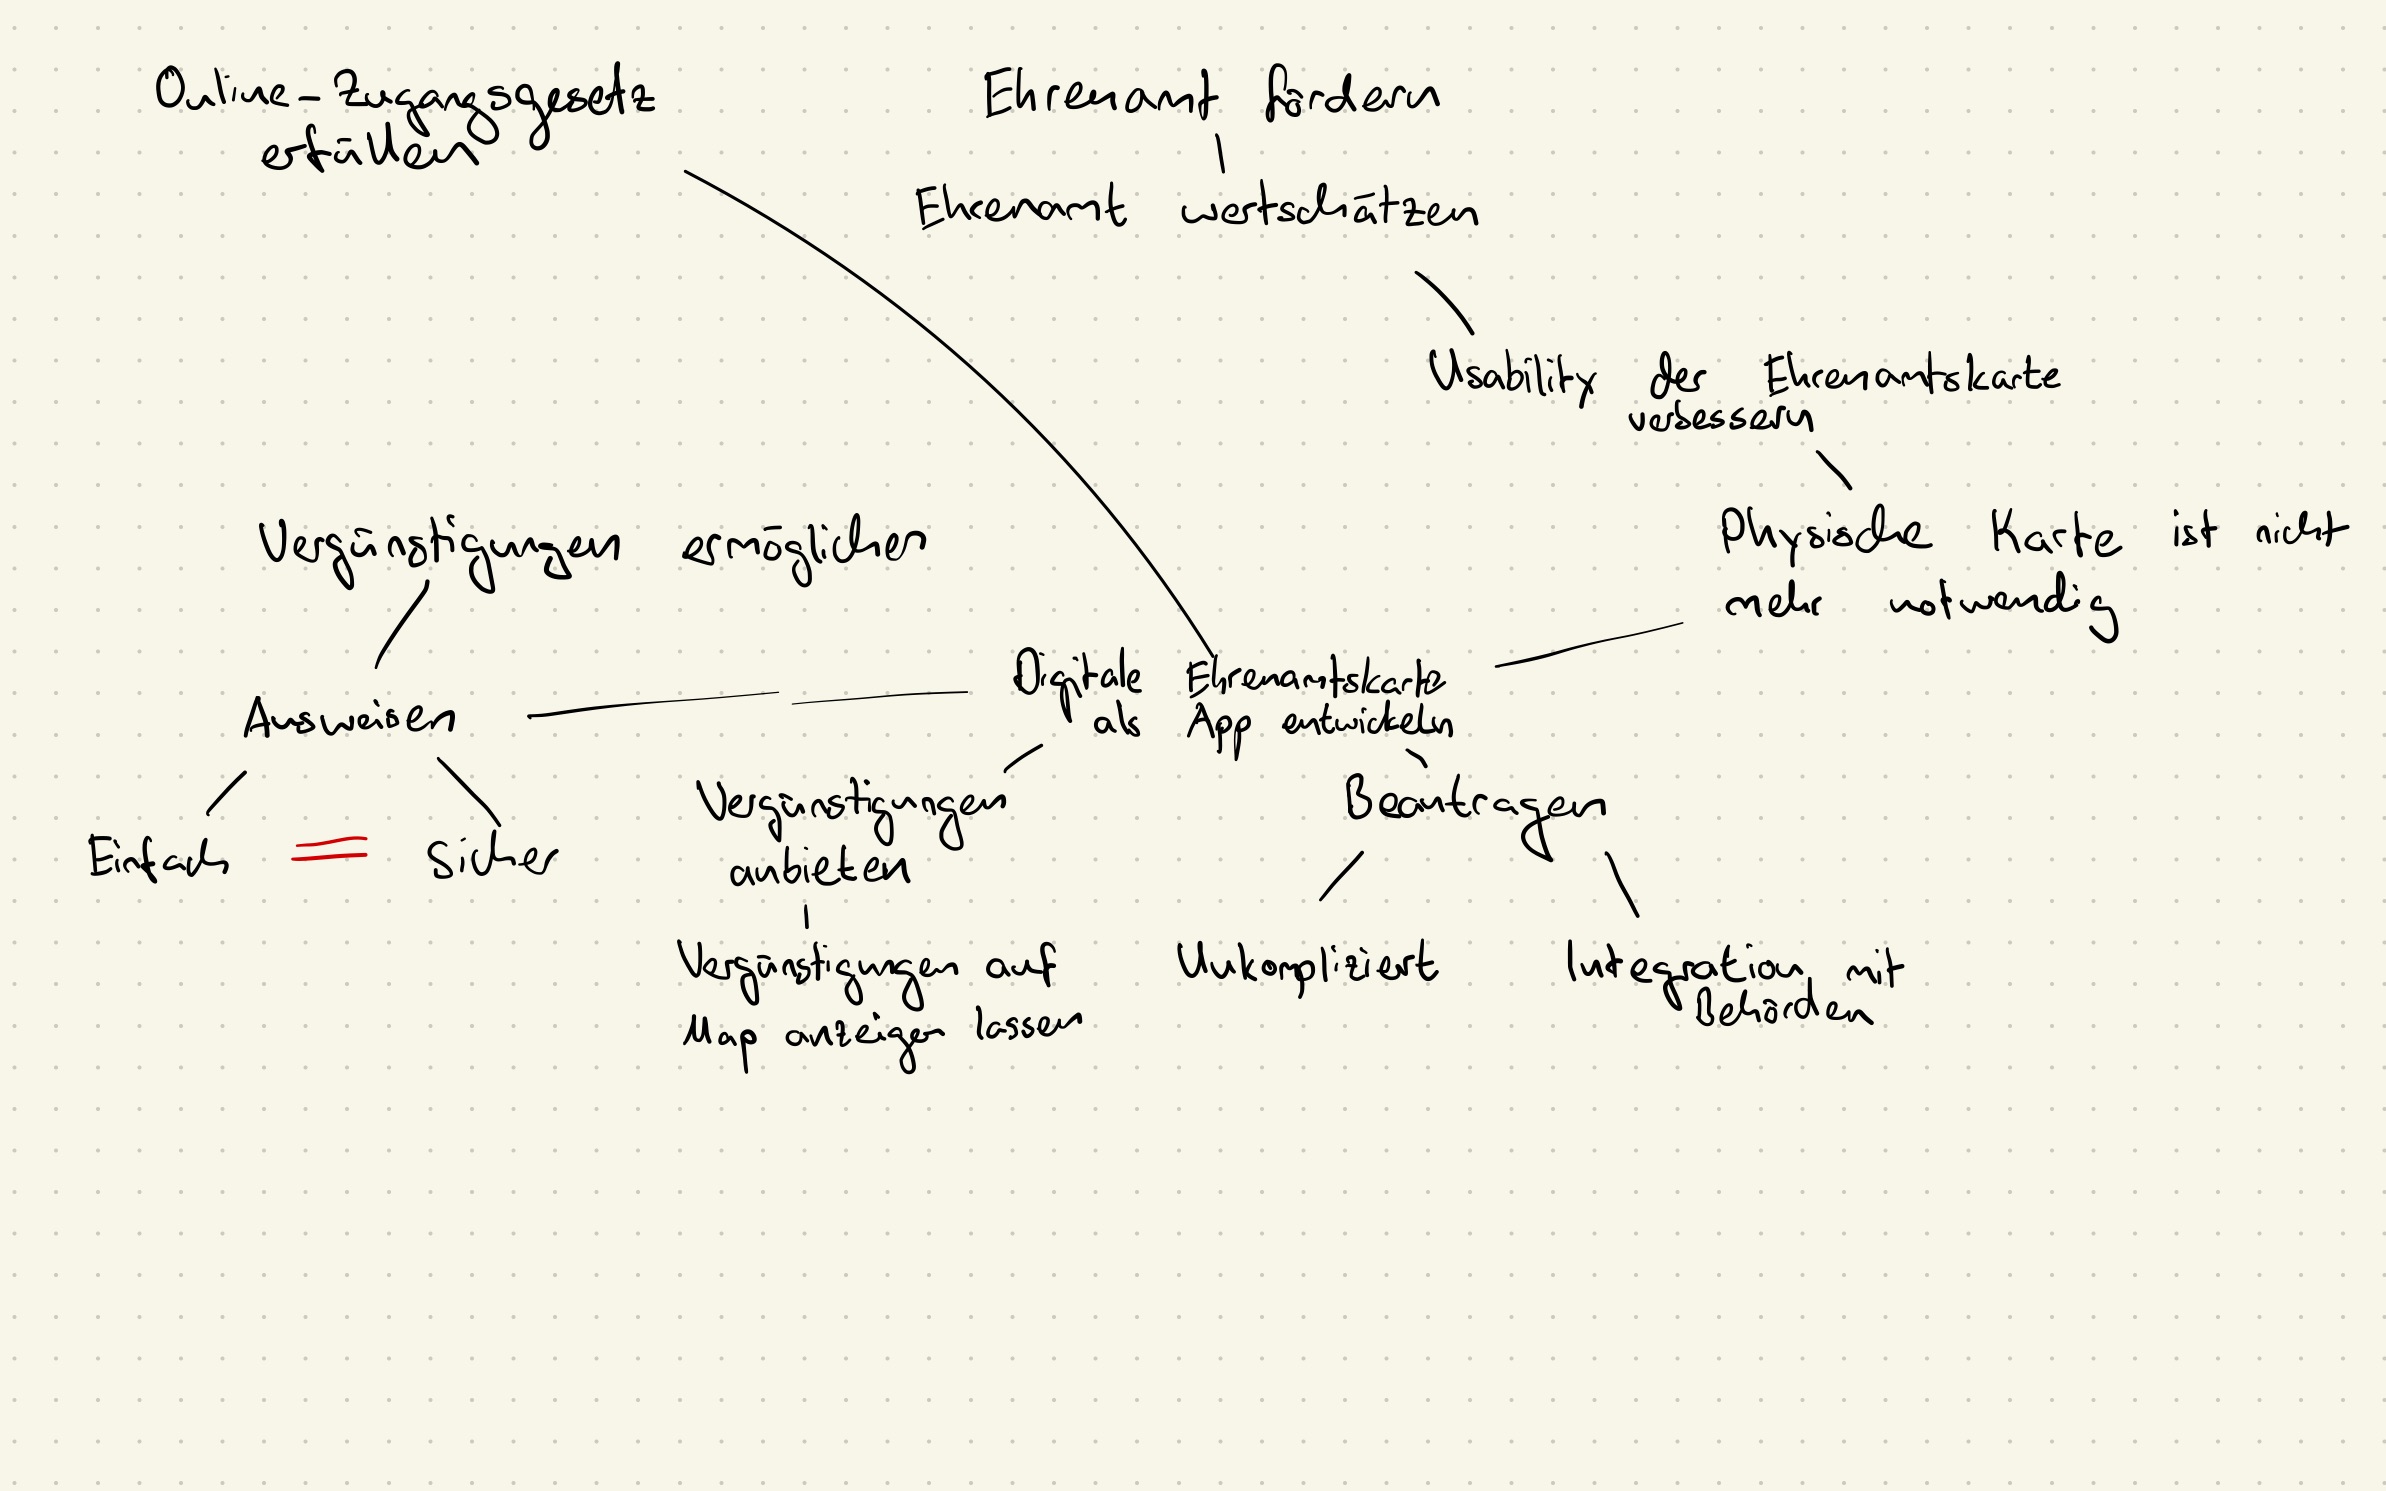 Online-Zugangsgesetz
erfüllen
Ehrenamt fördern
Ehrenamt wertschätzen
Usability der Ehrenamtskarte
verbessern
Physische Karte ist nicht
mehr notwendig
Vergünstigungen ermöglichen
Ausweisen
Einfach = Sicher
Digitale Ehrenamtskarte
als App entwickeln
Vergünstigungen
anbieten
Vergünstigungen auf
Map anzeigen lassen
Beantragen
Unkompliziert
Integration mit
Behörden